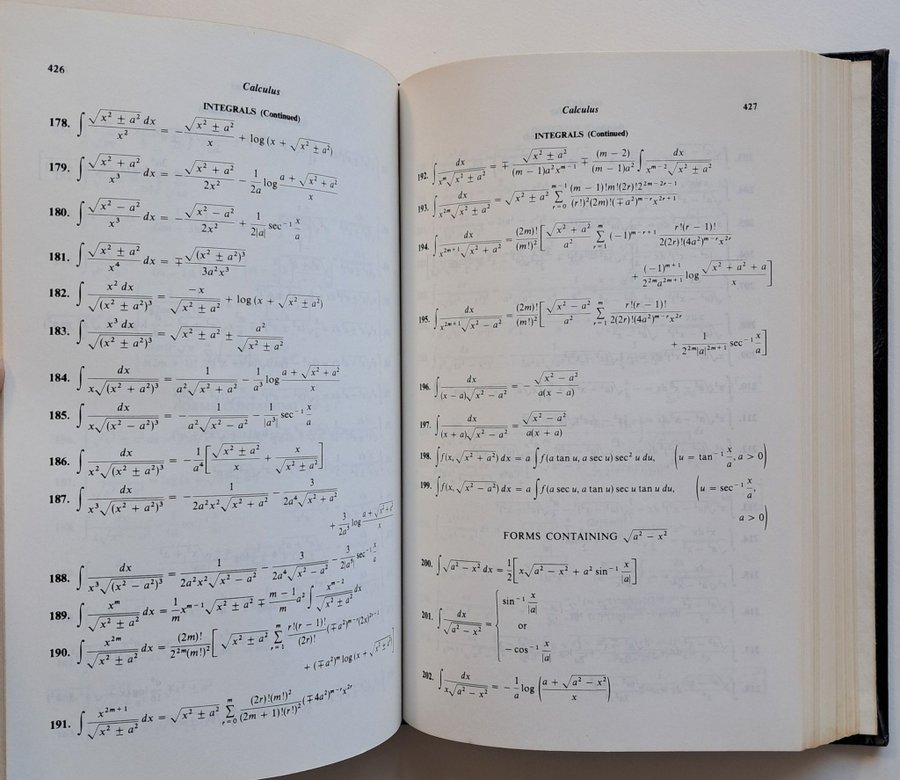 426
Calculus
INTEGRALS (Continued)
178. ∫ √(x² ± a²) dx / x² = −√(x² ± a²)/x + log (x + √(x² ± a²))
179. ∫ √(x² + a²)/x³ dx = −√(x² + a²)/2x² − 1/2a log (a + √(x² + a²))/x
180. ∫ √(x² − a²)/x³ dx = −√(x² − a²)/2x² + 1/2|a| sec⁻¹ x/a
181. ∫ √(x² ± a²)/x⁴ dx = ∓√(x² ± a²)³/3a²x³
182. ∫ x² dx/√(x² ± a²)³ = −x/√(x² ± a²) + log (x + √(x² ± a²))
183. ∫ x³ dx/√(x² ± a²)³ = √(x² ± a²) ± a²/√(x² ± a²)
184. ∫ dx/x√(x² + a²)³ = 1/a²√(x² + a²) − 1/a³ log (a + √(x² + a²))/x
185. ∫ dx/x√(x² − a²)³ = −1/a²√(x² − a²) − 1/|a³| sec⁻¹ x/a
186. ∫ dx/x²√(x² ± a²)³ = −1/a⁴[√(x² ± a²)/x + x/√(x² ± a²)]
187. ∫ dx/x³√(x² + a²)³ = −1/2a²x²√(x² + a²) − 3/2a⁴√(x² + a²)
+ 3/2a⁵ log (a + √(x² + a²))/x
188. ∫ dx/x³√(x² − a²)³ = 1/2a²x²√(x² − a²) − 3/2a⁴√(x² − a²) − 3/2|a⁵| sec⁻¹ x/a
189. ∫ xᵐ/√(x² ± a²) dx = 1/m xᵐ⁻¹√(x² ± a²) ∓ (m − 1)/m a² ∫ xᵐ⁻²/√(x² ± a²) dx
190. ∫ x²ᵐ/√(x² ± a²) dx = (2m)!/2²ᵐ(m!)² [√(x² ± a²) Σ_{r=1}^{m} r!(r − 1)!/(2r)! (∓a²)ᵐ⁻ʳ(2x)²ʳ⁻¹
+ (∓a²)ᵐ log (x + √(x² ± a²))]
191. ∫ x²ᵐ⁺¹/√(x² ± a²) dx = √(x² ± a²) Σ_{r=0}^{m} (2r)!(m!)²/(2m + 1)!(r!)² (∓4a²)ᵐ⁻ʳx²ʳ
Calculus
427
INTEGRALS (Continued)
192. ∫ dx/xᵐ√(x² ± a²) = ∓√(x² ± a²)/(m − 1)a²xᵐ⁻¹ ∓ (m − 2)/(m − 1)a² ∫ dx/xᵐ⁻²√(x² ± a²)
193. ∫ dx/x²ᵐ√(x² ± a²) = √(x² ± a²) Σ_{r=0}^{m−1} (m − 1)!m!(2r)!2²ᵐ⁻²ʳ⁻¹/(r!)²(2m)!(∓a²)ᵐ⁻ʳx²ʳ⁺¹
194. ∫ dx/x²ᵐ⁺¹√(x² + a²) = (2m)!/(m!)² [√(x² + a²)/a² Σ_{r=1}^{m} (−1)ᵐ⁻ʳ⁺¹ r!(r − 1)!/2(2r)!(4a²)ᵐ⁻ʳx²ʳ
+ (−1)ᵐ⁺¹/2²ᵐa²ᵐ⁺¹ log (√(x² + a²) + a)/x]
195. ∫ dx/x²ᵐ⁺¹√(x² − a²) = (2m)!/(m!)² [√(x² − a²)/a² Σ_{r=1}^{m} r!(r − 1)!/2(2r)!(4a²)ᵐ⁻ʳx²ʳ
+ 1/2²ᵐ|a|²ᵐ⁺¹ sec⁻¹ x/a]
196. ∫ dx/(x − a)√(x² − a²) = −√(x² − a²)/a(x − a)
197. ∫ dx/(x + a)√(x² − a²) = √(x² − a²)/a(x + a)
198. ∫ f(x, √(x² + a²)) dx = a ∫ f(a tan u, a sec u) sec² u du, (u = tan⁻¹ x/a, a > 0)
199. ∫ f(x, √(x² − a²)) dx = a ∫ f(a sec u, a tan u) sec u tan u du, (u = sec⁻¹ x/a,
a > 0)
FORMS CONTAINING √(a² − x²)
200. ∫ √(a² − x²) dx = 1/2[x√(a² − x²) + a² sin⁻¹ x/|a|]
201. ∫ dx/√(a² − x²) = { sin⁻¹ x/|a|
or
− cos⁻¹ x/|a|
202. ∫ dx/x√(a² − x²) = −1/a log ((a + √(a² − x²))/x)